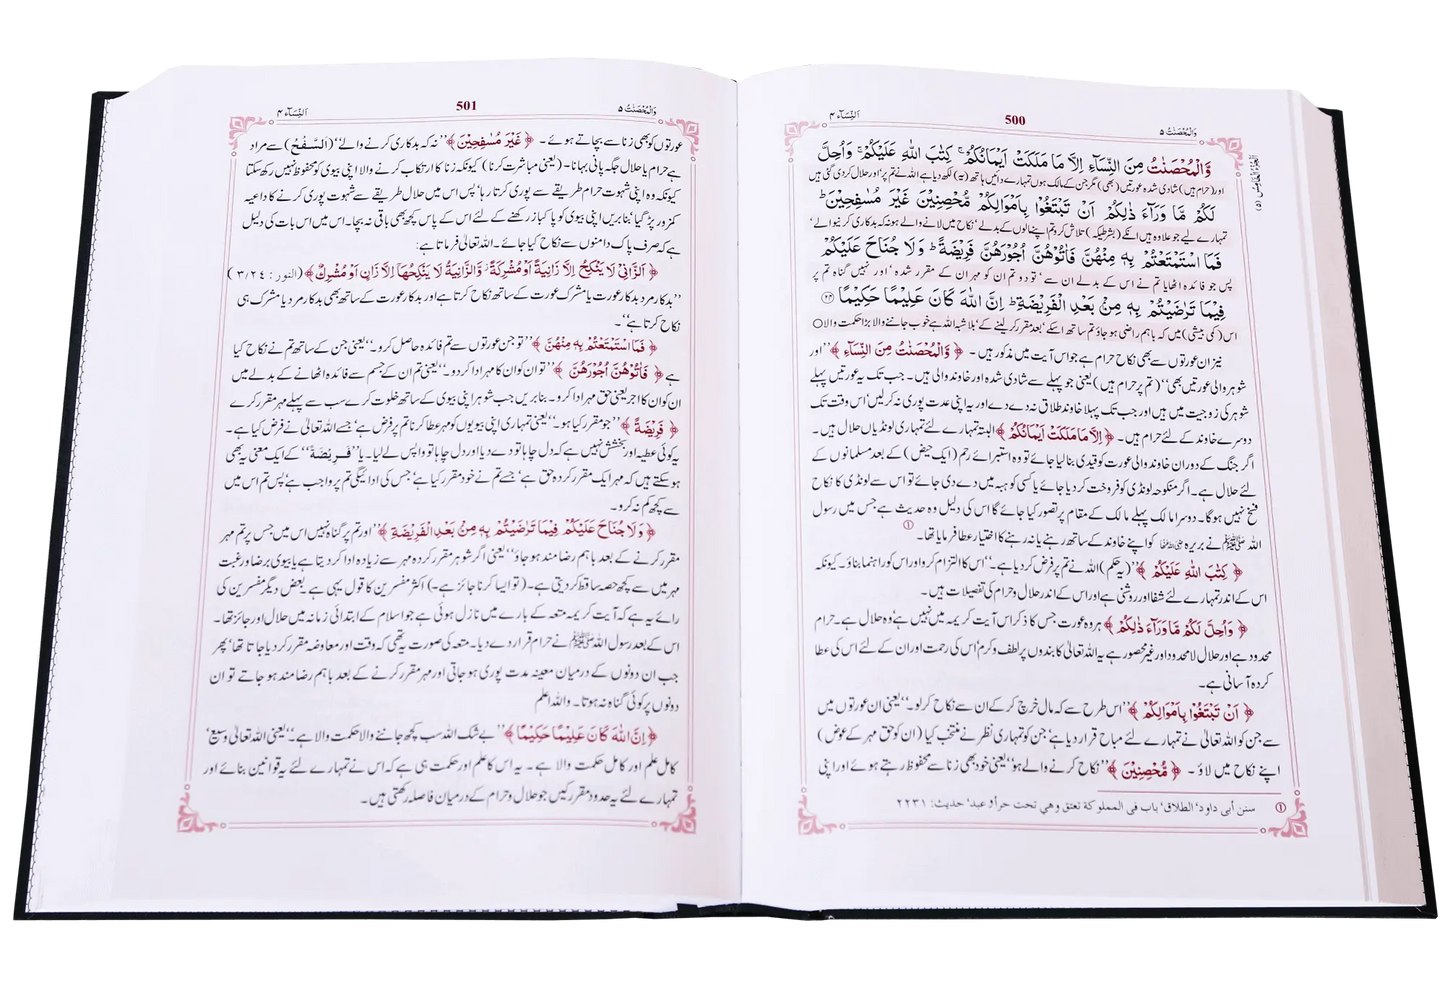 وَالْمُحْصَنٰتُ ۵
500
اَلنِّسَآء ۴
وَّالْمُحْصَنٰتُ مِنَ النِّسَآءِ اِلَّا مَا مَلَكَتْ اَيْمَانُكُمْ ۚ كِتٰبَ اللّٰهِ عَلَيْكُمْ ۚ وَاُحِلَّ
اور (حرام ہیں) شادی شدہ عورتیں (بھی) مگر جن کے مالک ہوں تمہارے دائیں ہاتھ (یہ) لکھ دیا ہے اللہ نے تم پر‘ اور حلال کر دی گئی ہیں
لَكُمْ مَّا وَرَآءَ ذٰلِكُمْ اَنْ تَبْتَغُوْا بِاَمْوَالِكُمْ مُّحْصِنِيْنَ غَيْرَ مُسٰفِحِيْنَ ؕ
تمہارے لیے جو علاوہ ہیں انکے (بشرطیکہ) تلاش کرو تم اپنے مالوں کے بدلے‘ نکاح میں لانے والے ہو نہ کہ بدکاری کرنیوالے‘
فَمَا اسْتَمْتَعْتُمْ بِهٖ مِنْهُنَّ فَاٰتُوْهُنَّ اُجُوْرَهُنَّ فَرِيْضَةً ؕ وَلَا جُنَاحَ عَلَيْكُمْ
پس جو فائدہ اٹھایا تم نے اس کے بدلے ان سے‘ تو دو تم ان کو مہر ان کے مقرر شدہ‘ اور نہیں گناہ تم پر
فِيْمَا تَرٰضَيْتُمْ بِهٖ مِنْۢ بَعْدِ الْفَرِيْضَةِ ؕ اِنَّ اللّٰهَ كَانَ عَلِيْمًا حَكِيْمًا ۝۲۴
اس (کمی بیشی) میں کہ باہم راضی ہو جاؤ تم ساتھ اسکے‘ بعد مقرر کر لینے کے‘ بلاشبہ اللہ ہے خوب جاننے والا بڑا حکمت والا○
نیز ان عورتوں سے بھی نکاح حرام ہے جو اس آیت میں مذکور ہیں۔ ﴿ وَّالْمُحْصَنٰتُ مِنَ النِّسَآءِ ﴾ ’’اور
شوہر والی عورتیں بھی‘‘ (تم پر حرام ہیں) یعنی جو پہلے سے شادی شدہ اور خاوند والی ہیں۔ جب تک یہ عورتیں پہلے
شوہر کی زوجیت میں ہیں اور جب تک پہلا خاوند طلاق نہ دے دے اور یہ اپنی عدت پوری نہ کر لیں‘ اس وقت تک
دوسرے خاوند کے لئے حرام ہیں۔ ﴿ اِلَّا مَا مَلَكَتْ اَيْمَانُكُمْ ﴾ البتہ تمہارے لئے تمہاری لونڈیاں حلال ہیں۔
اگر جنگ کے دوران خاوند والی عورت کو قیدی بنا لیا جائے تو وہ استبرائے رحم (ایک حیض) کے بعد مسلمانوں کے
لئے حلال ہے۔ اگر منکوحہ لونڈی کو فروخت کر دیا جائے یا کسی کو ہبہ میں دے دی جائے تو اس سے لونڈی کا نکاح
فسخ نہیں ہوگا۔ دوسرا مالک پہلے مالک کے مقام پر تصور کیا جائے گا اس کی دلیل وہ حدیث ہے جس میں رسول
اللہ ﷺ نے بریرہ رضی اللہ عنہا کو اپنے خاوند کے ساتھ رہنے یا نہ رہنے کا اختیار عطا فرمایا تھا۔ ①
﴿ كِتٰبَ اللّٰهِ عَلَيْكُمْ ﴾ ’’(یہ حکم) اللہ نے تم پر فرض کر دیا ہے۔‘‘ اس کا التزام کرو اور اس کو راہنما بناؤ۔ کیونکہ
اس کے اندر تمہارے لئے شفا اور روشنی ہے اور اس کے اندر حلال و حرام کی تفصیلات ہیں۔
﴿ وَاُحِلَّ لَكُمْ مَّا وَرَآءَ ذٰلِكُمْ ﴾ ہر وہ عورت جس کا ذکر اس آیت کریمہ میں نہیں ہے‘ وہ حلال ہے۔ حرام
محدود ہے اور حلال لامحدود اور غیر محصور ہے یہ اللہ تعالیٰ کا بندوں پر لطف و کرم‘ اس کی رحمت اور ان کے لئے اس کی عطا
کردہ آسانی ہے۔
﴿ اَنْ تَبْتَغُوْا بِاَمْوَالِكُمْ ﴾ ’’اس طرح سے کہ مال خرچ کر کے ان سے نکاح کر لو۔‘‘ یعنی ان عورتوں میں
سے جن کو اللہ تعالیٰ نے تمہارے لئے مباح قرار دیا ہے‘ جن کو تمہاری نظر نے منتخب کیا (ان کو حق مہر کے عوض)
اپنے نکاح میں لاؤ۔ ﴿ مُّحْصِنِيْنَ ﴾ ’’نکاح کرنے والے ہو‘‘ یعنی خود بھی زنا سے محفوظ رہتے ہوئے اور اپنی
① سنن أبی داود‘ الطلاق‘ باب فی المملوكة تعتق وهي تحت حر أو عبد‘ حدیث: ۲۲۳۱
وَالْمُحْصَنٰتُ ۵
501
اَلنِّسَآء ۴
عورتوں کو بھی زنا سے بچاتے ہوئے۔ ﴿ غَيْرَ مُسٰفِحِيْنَ ﴾ ’’نہ کہ بدکاری کرنے والے‘‘ (اَلسَّفْحُ) سے مراد
ہے حرام یا حلال جگہ پانی بہانا۔ (یعنی مباشرت کرنا) کیونکہ زنا کا ارتکاب کرنے والا اپنی بیوی کو محفوظ نہیں رکھ سکتا
کیونکہ وہ اپنی شہوت حرام طریقے سے پوری کرتا رہا‘ پس اس میں حلال طریقے سے شہوت پوری کرنے کا داعیہ
کمزور پڑ گیا‘ بنابریں اپنی بیوی کو پاکباز رکھنے کے لئے اس کے پاس کچھ بھی باقی نہ بچا۔ اس میں اس بات کی دلیل
ہے کہ صرف پاک دامنوں سے نکاح کیا جائے۔ اللہ تعالیٰ فرماتا ہے:
﴿ اَلزَّانِیْ لَا يَنْكِحُ اِلَّا زَانِيَةً اَوْ مُشْرِكَةً ۡ وَّالزَّانِيَةُ لَا يَنْكِحُهَاۤ اِلَّا زَانٍ اَوْ مُشْرِكٌ ﴾ (النور: ۳/۲۴)
’’بدکار مرد بدکار عورت یا مشرک عورت کے ساتھ نکاح کرتا ہے اور بدکار عورت کے ساتھ بھی بدکار مرد یا مشرک ہی
نکاح کرتا ہے‘‘۔
﴿ فَمَا اسْتَمْتَعْتُمْ بِهٖ مِنْهُنَّ ﴾ ’’تو جن عورتوں سے تم فائدہ حاصل کرو۔‘‘ یعنی جن کے ساتھ تم نے نکاح کیا
ہے ﴿ فَاٰتُوْهُنَّ اُجُوْرَهُنَّ ﴾ ’’تو ان کو ان کا مہر ادا کر دو۔‘‘ یعنی تم ان کے جسم سے فائدہ اٹھانے کے بدلے میں
ان کو ان کا اجر یعنی حق مہر ادا کرو۔ بنابریں جب شوہر اپنی بیوی کے ساتھ خلوت کرے سب سے پہلے مہر مقرر کرے
﴿ فَرِيْضَةً ﴾ ’’جو مقرر کیا ہو۔‘‘ یعنی تمہاری اپنی بیویوں کو مہر عطا کرنا تم پر فرض ہے‘ جسے اللہ تعالیٰ نے فرض کیا ہے۔
یہ کوئی عطیہ اور بخشش نہیں ہے کہ دل چاہا تو دے دیا اور دل چاہا تو واپس لے لیا۔ یا ’’فَرِيْضَةً‘‘ کے ایک معنی یہ بھی
ہو سکتے ہیں کہ مہر ایک مقرر کردہ حق ہے‘ جسے تم نے خود مقرر کیا ہے‘ جس کی ادائیگی تم پر واجب ہے‘ پس تم اس میں
سے کچھ کم نہ کرو۔
﴿ وَلَا جُنَاحَ عَلَيْكُمْ فِيْمَا تَرٰضَيْتُمْ بِهٖ مِنْۢ بَعْدِ الْفَرِيْضَةِ ﴾ ’’اور تم پر گناہ نہیں اس میں جس پر تم مہر
مقرر کرنے کے بعد باہم رضامند ہو جاؤ‘‘ یعنی اگر شوہر مقرر کردہ مہر سے زیادہ ادا کر دیتا ہے یا بیوی برضا و رغبت
مہر میں سے کچھ حصہ ساقط کر دیتی ہے۔ (تو ایسا کرنا جائز ہے۔) اکثر مفسرین کا قول یہی ہے‘ بعض دیگر مفسرین کی
رائے یہ ہے کہ آیت کریمہ متعہ کے بارے میں نازل ہوئی ہے جو اسلام کے ابتدائی زمانہ میں حلال اور جائز تھا۔
اس کے بعد رسول اللہ ﷺ نے حرام قرار دے دیا۔ متعہ کی صورت یہ تھی کہ وقت اور معاوضہ مقرر کر دیا جاتا تھا‘ پھر
جب ان دونوں کے درمیان معینہ مدت پوری ہو جاتی اور مہر مقرر کرنے کے بعد باہم رضامند ہو جاتے تو ان
دونوں پر کوئی گناہ نہ ہوتا۔ واللہ اعلم
﴿ اِنَّ اللّٰهَ كَانَ عَلِيْمًا حَكِيْمًا ﴾ ’’بے شک اللہ سب کچھ جاننے والا حکمت والا ہے۔‘‘ یعنی اللہ تعالیٰ وسیع‘
کامل علم اور کامل حکمت والا ہے۔ یہ اس کا علم اور حکمت ہی ہے کہ اس نے تمہارے لئے یہ قوانین بنائے اور
تمہارے لئے یہ حدود مقرر کیں جو حلال و حرام کے درمیان فاصلہ رکھتی ہیں۔